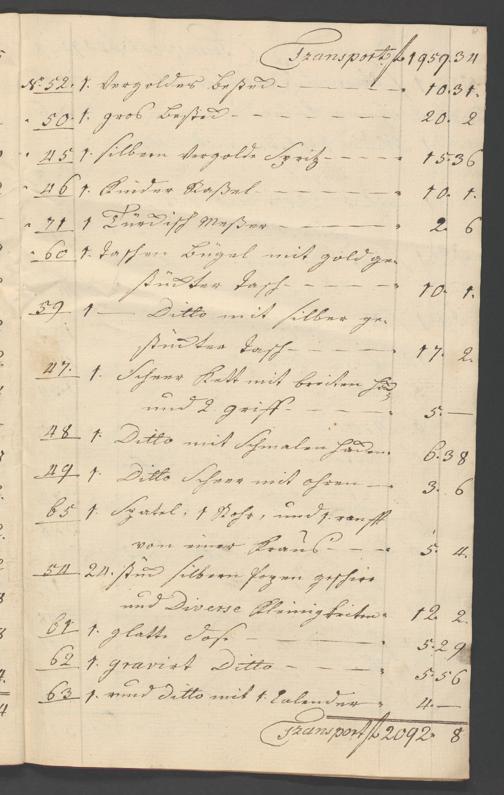 Transport f 1959. 34
No. 52. 1. Vergoldes Besteck 10. 31.
50 1. gros Besteck 20. 2
45 1. silbern Vergolde Spritz 15. 36
46 1. Kinder Raßel 10. 1.
71 1 Türckisch Meßer 2. 6
60 1. Taschen Bügel mit gold ge-
stückter Tasch 10. 1.
59 1 Ditto mit silber ge-
stückter Tasch 17. 2.
47. 1. Scheer Kett mit breiten
und 2 griff 5. —
48 1. Ditto mit Schmalen 6. 38
49 1. Ditto Scheer mit ohren 3. 6
65 1. Spatel, 1 Rohr, und 1.
von einer 5. 4.
54 24. stuck silbern
und Diverse Kleinigkeiten 12. 2.
61 1. glatte Dose 5. 29
62 1. gravirt Ditto 5. 56
63 1. rund ditto mit 1. Calender 4. —
Transport f 2092. 8